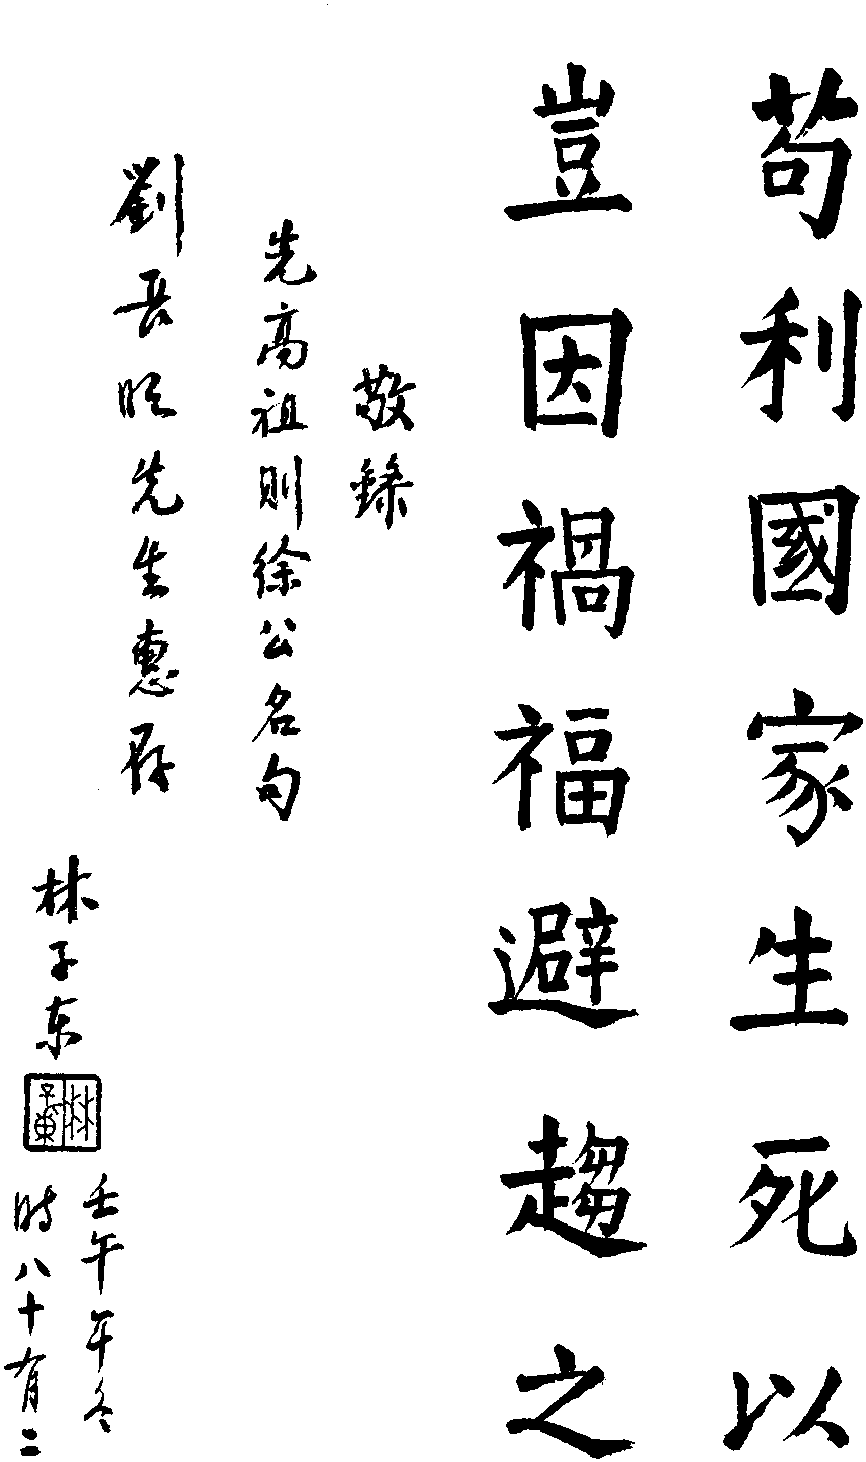 苟利國家生死以
豈因禍福避趨之
敬錄
先高祖則徐公名句
劉 先生惠存
林子东
林子東
壬午年冬
時八十有二